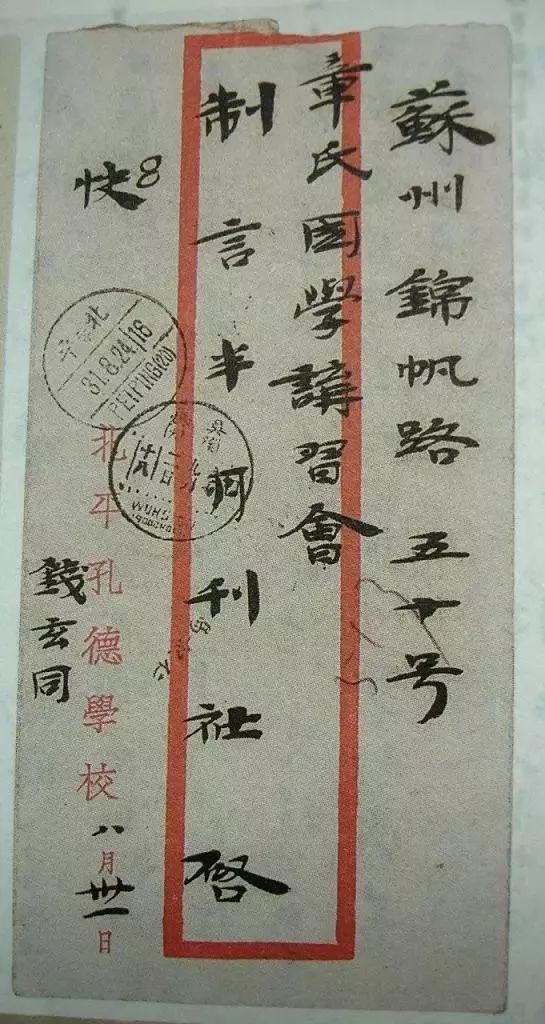 蘇州錦帆路五十号
章氏國學講習會
制言半月刊社啓
快8
平北
31.8.24 16
PEIPING(20)
北平孔德學校
錢玄同
八月卅一日